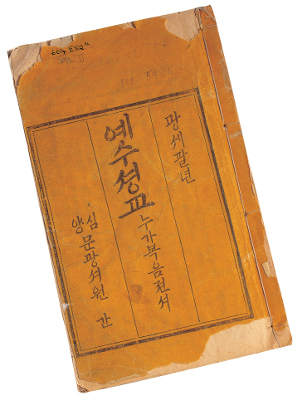 광셰팔년
예수셩교 누가복음젼셔
심양 문광셔원 간